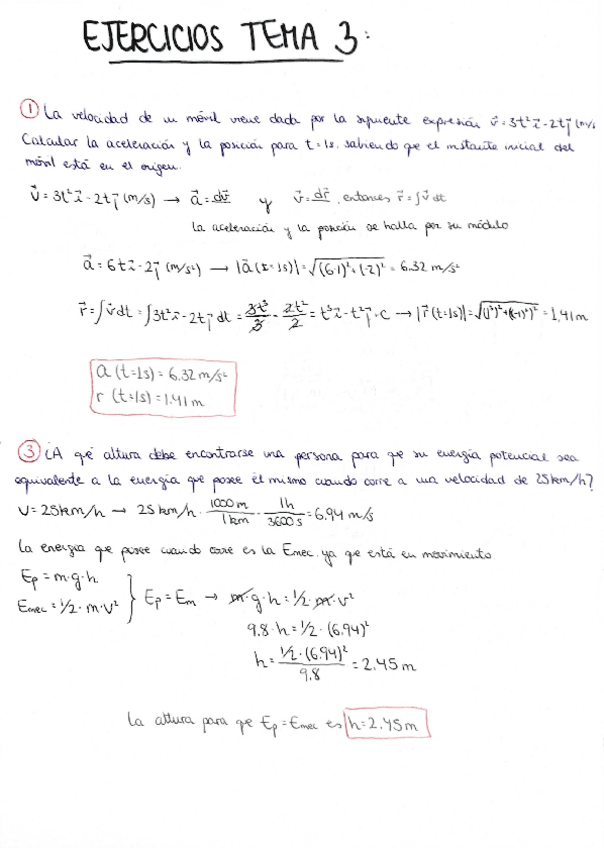 EJERCICIOS TEMA 3:
① La velocidad de un móvil viene dada por la siguiente expresión v⃗ = 3t² i⃗ - 2t j⃗ (m/s
Calcular la aceleración y la posición para t = 1s, sabiendo que el instante inicial del
móvil está en el origen.
v⃗ = 3t² i⃗ - 2t j⃗ (m/s) → a⃗ = dv⃗ y v⃗ = dr⃗, entonces r⃗ = ∫ v⃗ dt
la aceleración y la posición se halla por su módulo
a⃗ = 6t i⃗ - 2 j⃗ (m/s²) → |a⃗ (t=1s)| = √(6·1)² + (-2)² = 6.32 m/s²
r⃗ = ∫ v⃗ dt = ∫ 3t² i⃗ - 2t j⃗ dt = 3t³/3 - 2t²/2 = t³ i⃗ - t² j⃗ + C → |r⃗ (t=1s)| = √(1³)² + (-1²)² = 1.41 m
a (t=1s) = 6.32 m/s²
r (t=1s) = 1.41 m
③ ¿A qué altura debe encontrarse una persona para que su energía potencial sea
equivalente a la energía que posee él mismo cuando corre a una velocidad de 25 km/h?
v = 25 km/h → 25 km/h · 1000 m/1 km · 1h/3600 s = 6.94 m/s
La energía que posee cuando corre es la Emec, ya que está en movimiento
Ep = m·g·h
Emec = 1/2 · m · v²
} Ep = Em → m·g·h = 1/2 · m · v²
9.8 · h = 1/2 · (6.94)²
h = 1/2 · (6.94)²/9.8 = 2.45 m
La altura para que Ep = Emec es h = 2.45 m